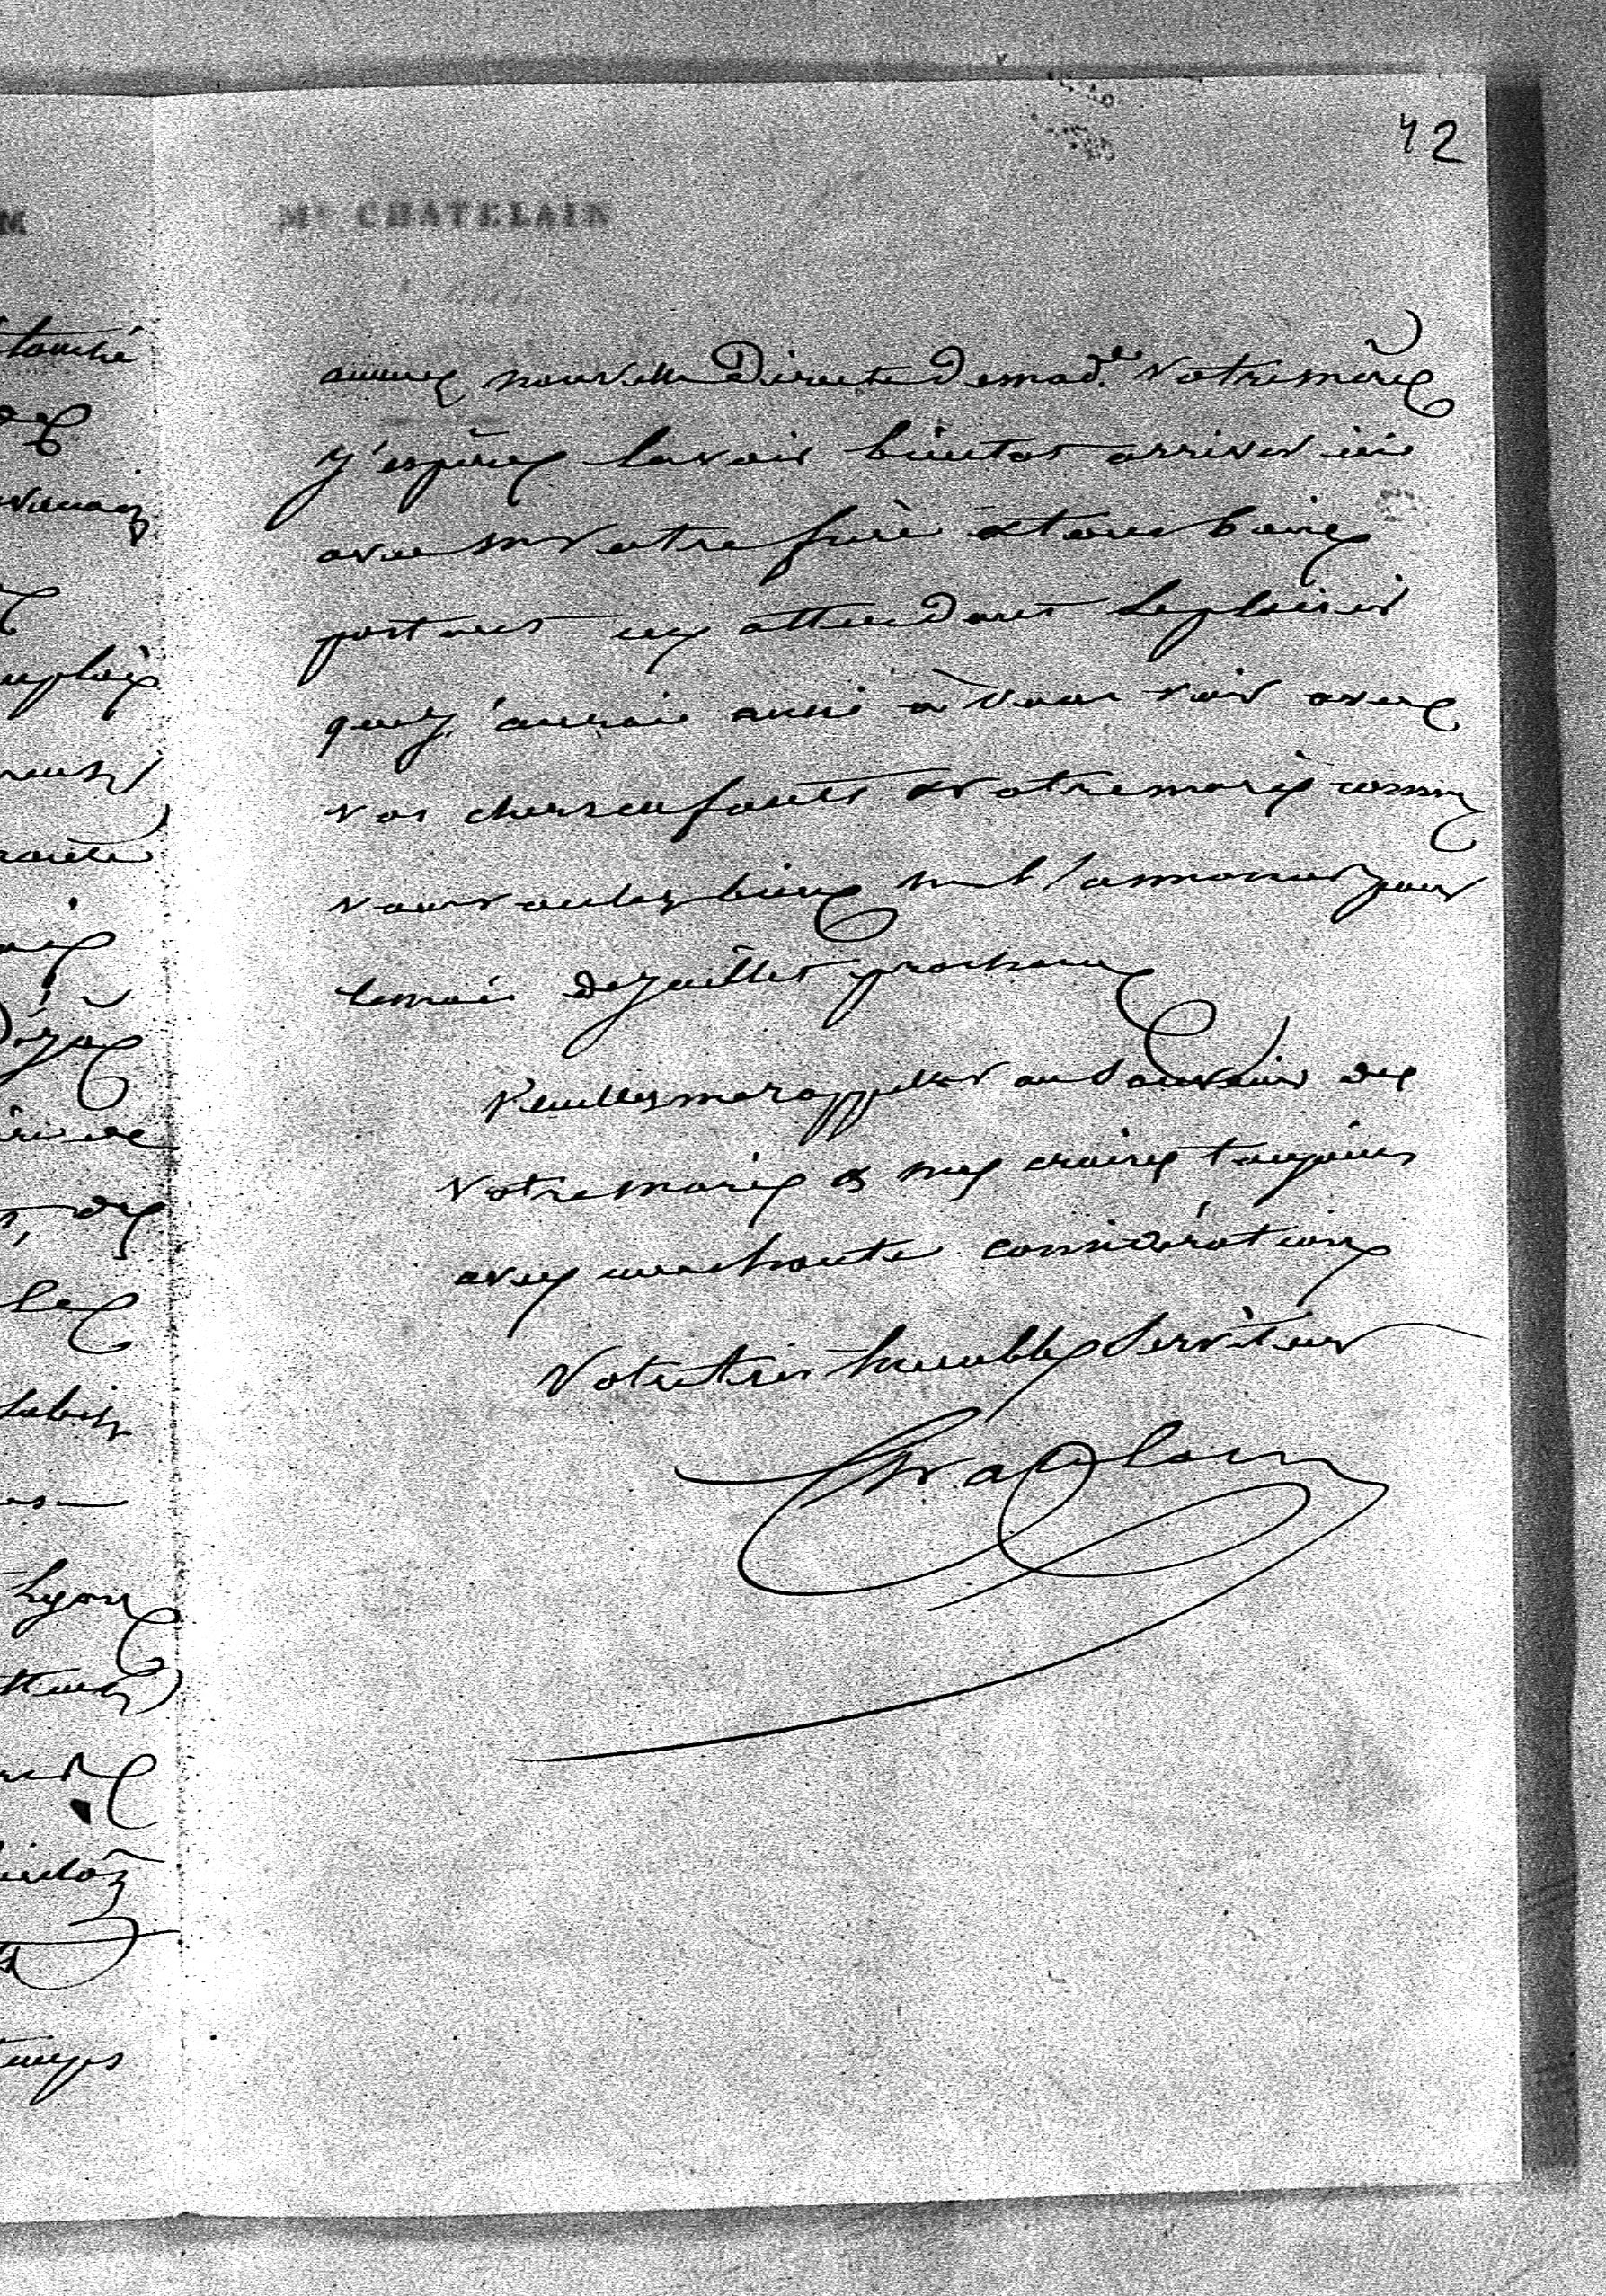 42
Me CHATELAIN
aucune nouvelle Directe de mad.e votre mère
j'espère la voir bientot arriver ici
avec m votre frère & tous bien
portans en attendant le plaisir
que j'aurai aussi à vous voir avec
vos chers enfants & votre mari comme
vous voulez bien me l'annoncer pour
le mois de juillet prochain
Veuillez me rappeller au Souvenir de
votre mari & me croire toujours
avec une haute considération
Votre très humble Serviteur
Chatelain
touché
Déja
de
le
Lyon
temps